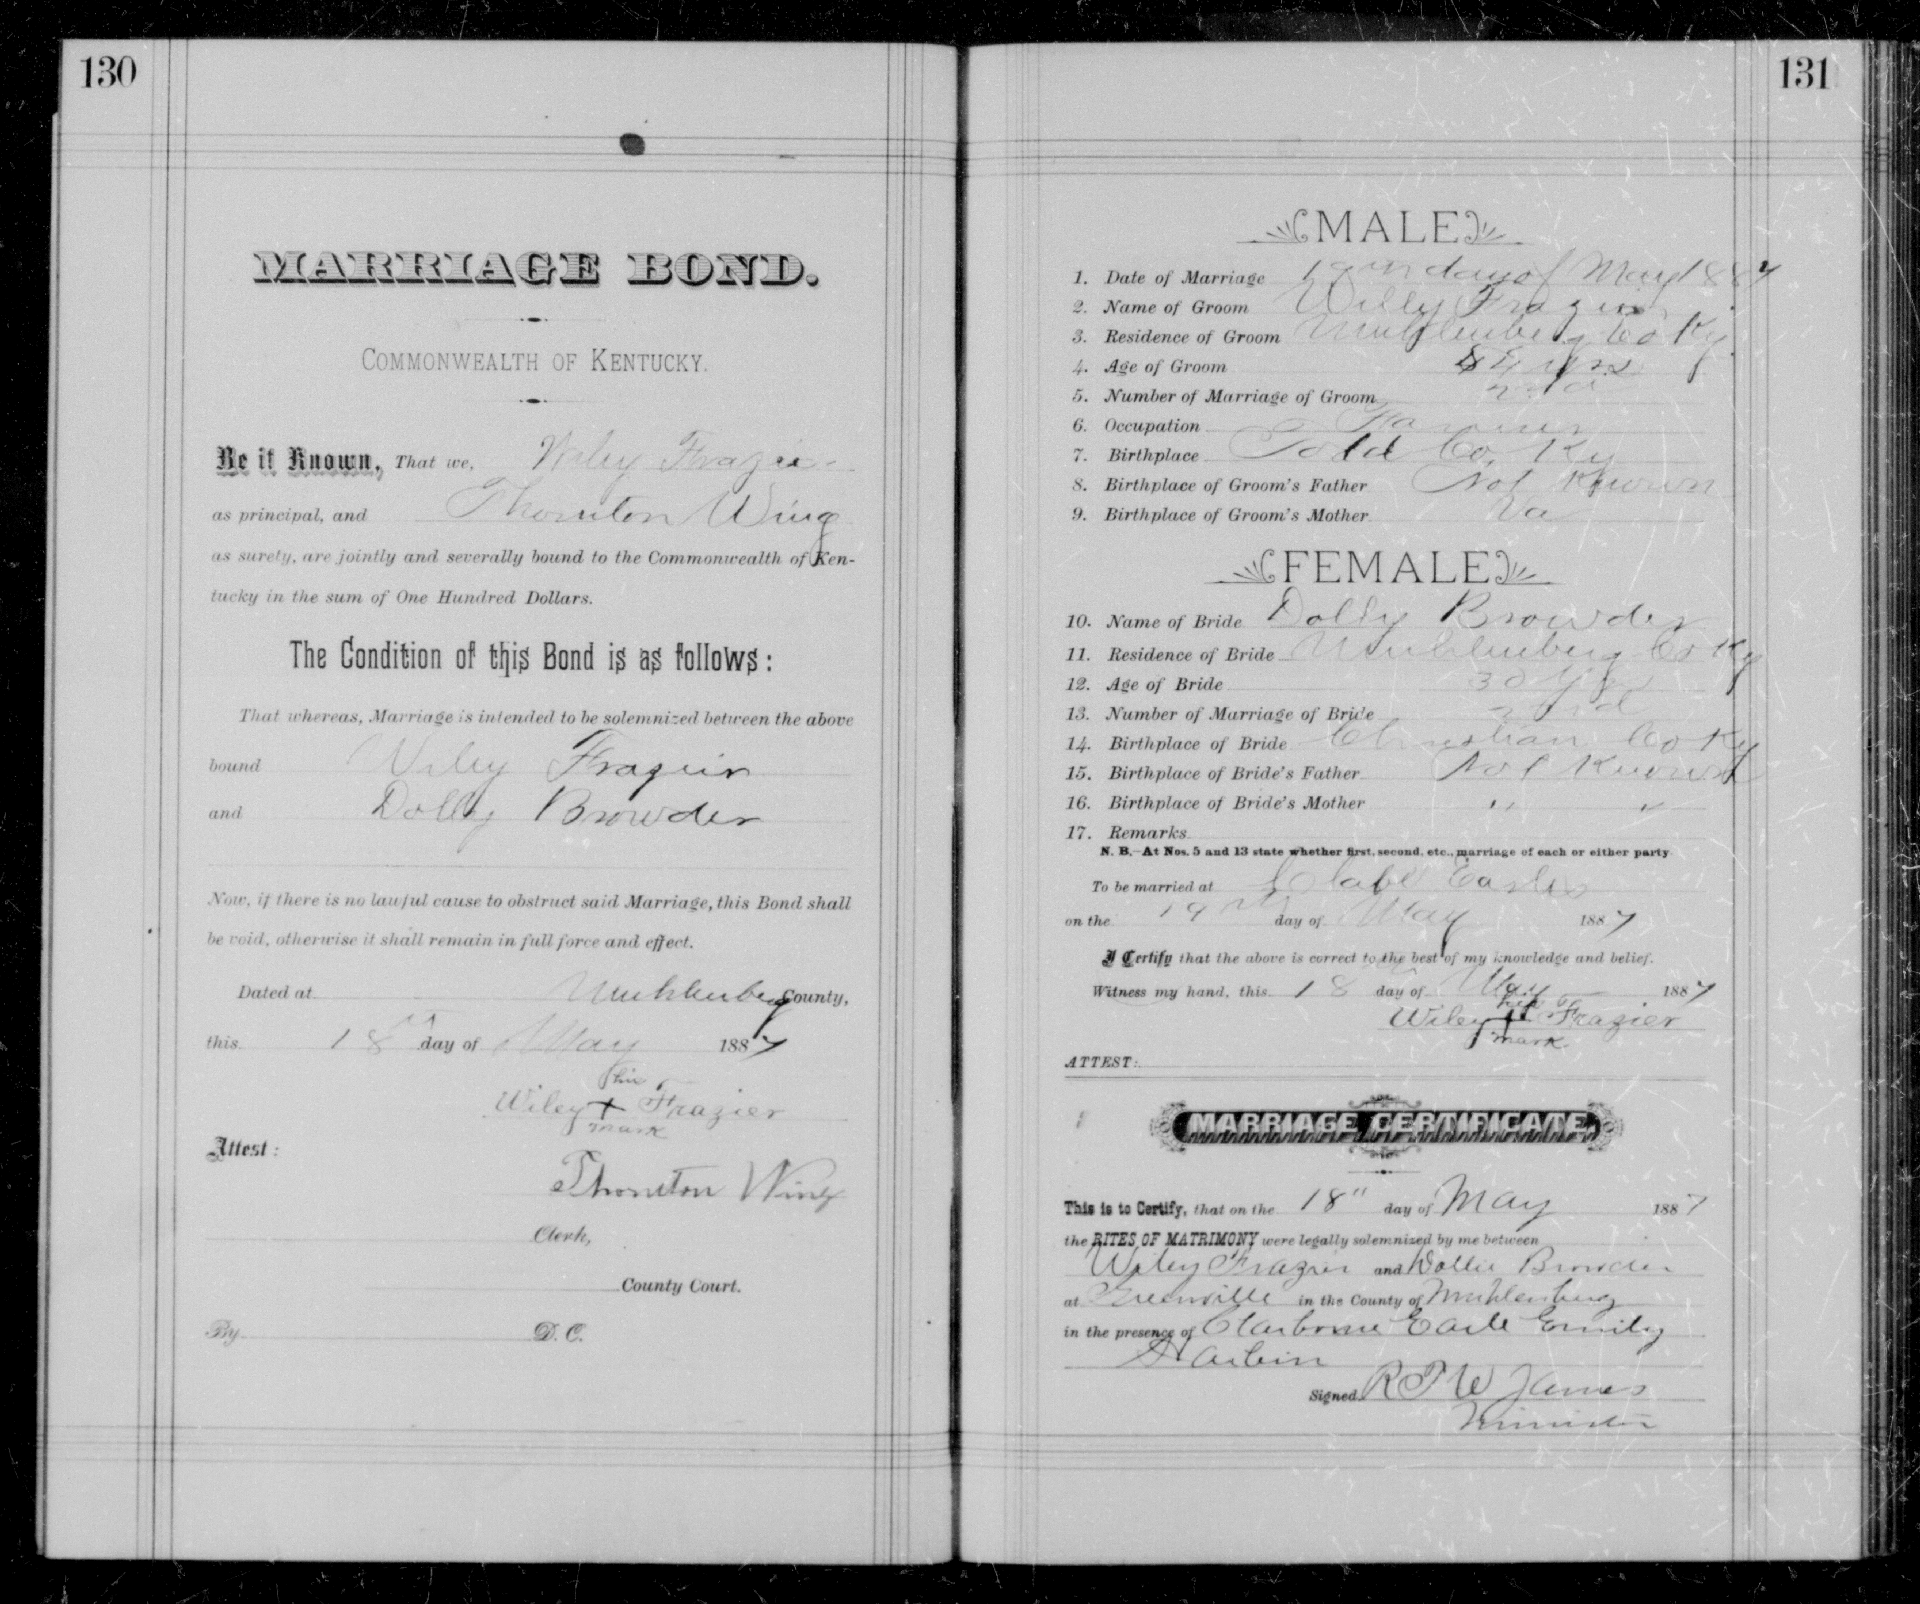 130
MARRIAGE BOND.
COMMONWEALTH OF KENTUCKY.
Be it Known, That we, Wiley Frazier
as principal, and Thornton Wing
as surety, are jointly and severally bound to the Commonwealth of Ken-
tucky in the sum of One Hundred Dollars.
The Condition of this Bond is as follows:
That whereas, Marriage is intended to be solemnized between the above
bound Wiley Frazier
and Dolly Browder
Now, if there is no lawful cause to obstruct said Marriage, this Bond shall
be void, otherwise it shall remain in full force and effect.
Dated at Muhlenberg County,
this 18 day of May 1887
his
Wiley + Frazier
mark
Attest:
Thornton Wing
Clerk,
County Court.
By D. C.
131
MALE
1. Date of Marriage 19th day of May 1887
2. Name of Groom Willy Frazier
3. Residence of Groom Muhlenberg Co Ky
4. Age of Groom yrs
5. Number of Marriage of Groom 2nd
6. Occupation Farmer
7. Birthplace Todd Co, Ky
8. Birthplace of Groom's Father Not Known
9. Birthplace of Groom's Mother Va
FEMALE
10. Name of Bride Dolly Browder
11. Residence of Bride Muhlenberg Co Ky
12. Age of Bride 30 Yrs
13. Number of Marriage of Bride 2nd
14. Birthplace of Bride Christian Co Ky
15. Birthplace of Bride's Father Not Known
16. Birthplace of Bride's Mother " "
17. Remarks
N. B.—At Nos. 5 and 13 state whether first, second, etc., marriage of each or either party
To be married at Clabe Earles
on the 19th day of May 1887
I Certify that the above is correct to the best of my knowledge and belief.
Witness my hand, this 18 day of May 1887
his
Wiley + Frazier
mark
ATTEST:
MARRIAGE CERTIFICATE.
This is to Certify, that on the 18" day of May 1887
the RITES OF MATRIMONY were legally solemnized by me between
Wiley Frazier and Dollie Browder
at Greenville in the County of Muhlenburg
in the presence of Claiborne Earle Emily
Harbin
Signed R T W James
Minister